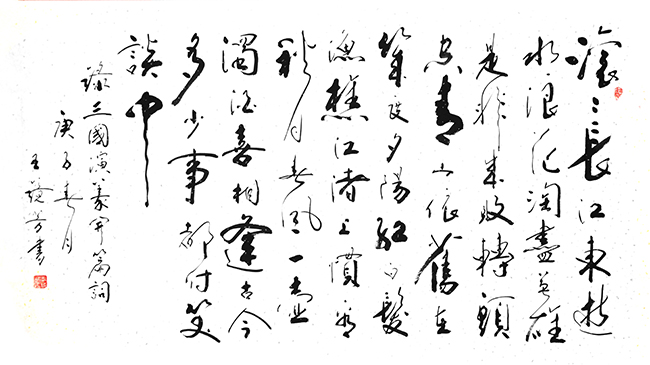 滚々長江東逝
水浪花淘盡英雄
是非成敗轉頭
空青山依舊在
幾度夕陽紅白髮
漁樵江渚上慣看
秋月春風一壺
濁酒喜相逢古今
多少事都付笑
談中
錄三國演義開篇詞
庚子春月
王芳書